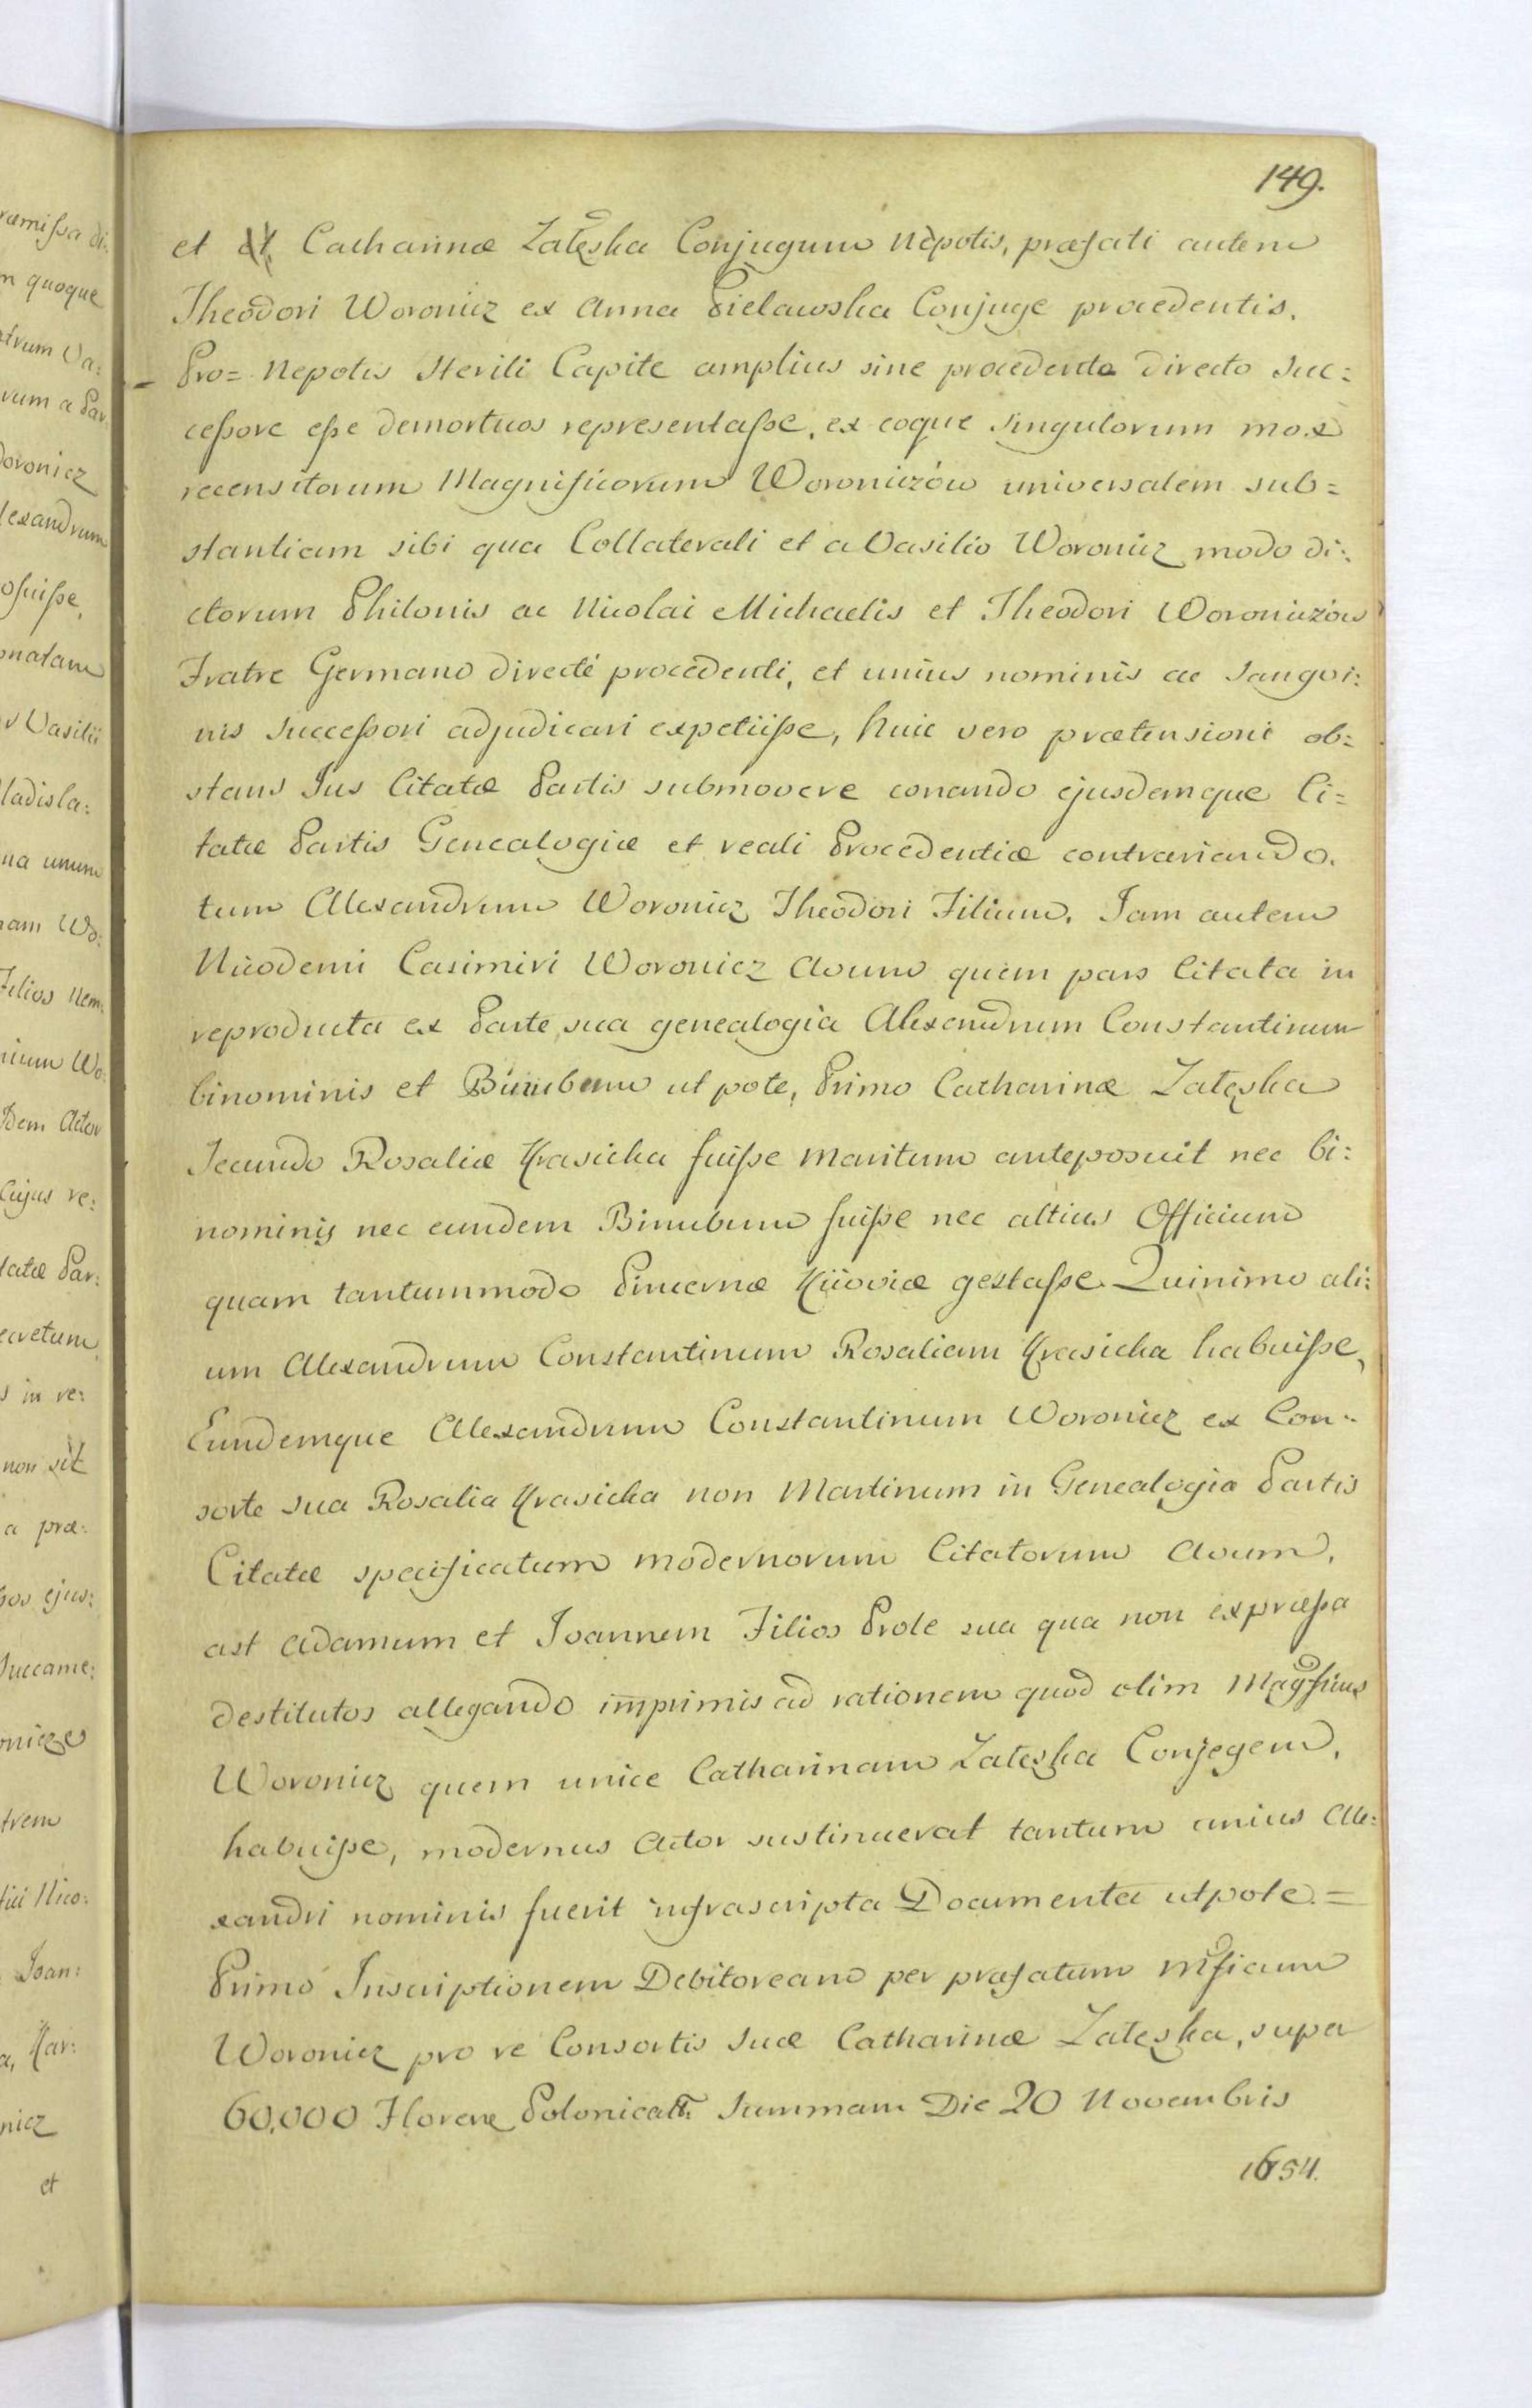 149.
et et Catharinæ Załęska Conjugum Nepotis, præfati autem
Theodori Woronicz ex Anna Pielawska Conjuge procedentis.
Pro= Nepotis sterili Capite amplius sine procedente directo Suc=
cessore esse demortuos representasse, ex eoque singulorum mox
recensitorum Magnificorum Woroniczów universalem sub=
stantiam sibi qua Collaterali et a Vasilio Woronicz modo di=
ctorum Philonis ac Nicolai Michaelis et Theodori Woroniczów
Fratre Germano directé procedenti, et unius nominis ac Sangvi=
nis Successori adjudicari expetiisse, huic vero prætensioni ob=
stans Jus Citatæ Partis submovere conando ejusdemque Ci=
tatæ Partis Genealogiæ et reali Procedentiæ contrariando.
tum Alexandrum Woronicz Theodori Filium. Jam autem
Nicodemi Casimiri Woronicz Avum quem pars Citata in
reproducta ex Parte sua genealogia Alexandrum Constantinum
binominis et Binubum utpote, Primo Catharinæ Załęska
Secundo Rosaliæ Krasicka fuisse Maritum anteposuit nec bi=
nominis nec eundem Binubum fuisse nec altius Officium
quam tantummodo Pincernæ Kiioviæ gestasse. Quinimo ali=
um Alexandrum Constantinum Rosaliam Krasicka habuisse,
Eundemque Alexandrum Constantinum Woronicz ex Con=
sorte sua Rosalia Krasicka non Martinum in Genealogia Partis
Citatæ specificatum modernorum Citatorum Avum,
ast Adamum et Joannem Filios Prole sua qua non expressa
destitutos allegando imprimis ad rationem quod olim Magfficus
Woronicz quem unice Catharinam Załęska Conjegem,
habuisse, modernus Actor sustinuerat tantum unius Ale=
xandri nominis fuerit infrascripta Documenta utpote =
Primo Inscriptionem Debitoream per præfatum Mficum
Woronicz pro re Consortis suæ Catharinæ Załęska, super
60,000 Floren Polonicall. Summam Die 20 Novembris
1654.